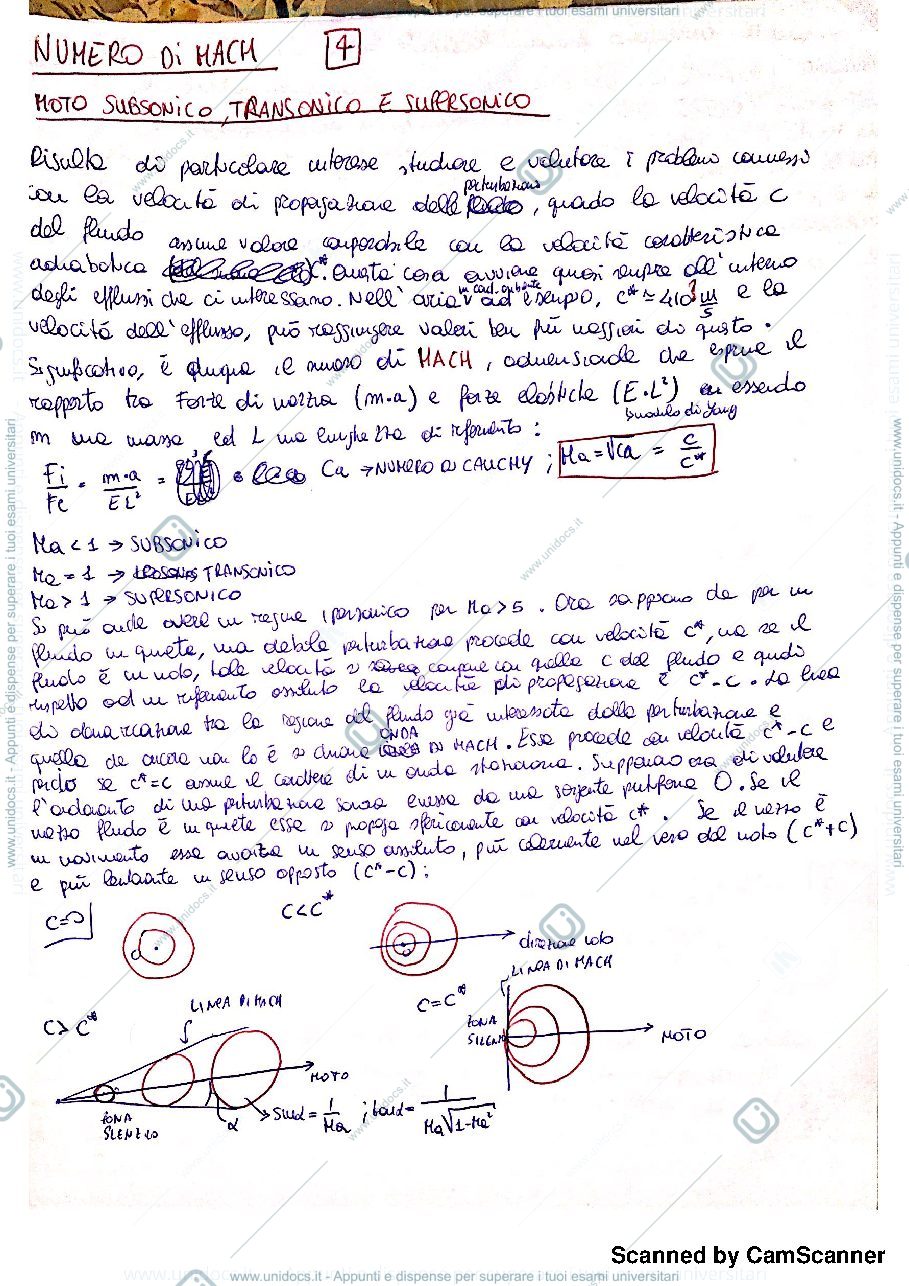 NUMERO Di MACH 4
MOTO SUBSONICO, TRANSONICO E SUPERSONICO
Risulta di particolare interesse studiare e valutare i problemi connessi
con la velocità di propagazione delle perturbazioni, quando la velocità c
del fluido assume valore comparabile con la velocità caratteristica
adiabatica c*. Questa cosa avviene quasi sempre all'interno
degli efflussi che ci interessano. Nell'aria in cond. ambiente ad esempio, c* ≃ 410³ m/s e la
velocità dell'efflusso, può raggiungere valori ben più maggiori di questo.
Significativo, è dunque il numero di MACH, adimensionale che esprime il
rapporto tra Forze di inerzia (m·a) e forze elastiche (E·L²) essendo
modulo di Young
m una massa ed L una lunghezza di riferimento:
Fi/Fe = m·a/EL² = Ca → NUMERO DI CAUCHY ; Ma = √Ca = c/c*
Ma < 1 → SUBSONICO
Ma = 1 → TRANSONICO
Ma > 1 → SUPERSONICO
Si può anche avere un regime ipersonico per Ma > 5. Ora sappiamo che per un
fluido in quiete, una debole perturbazione procede con velocità c*, ma se il
fluido è in moto, tale velocità si compone con quella c del fluido e quindi
rispetto ad un riferimento assoluto la velocità di propagazione è c* - c. La linea
di demarcazione tra la regione del fluido già interessata dalla perturbazione e
quella che ancora non lo è si chiama ONDA DI MACH. Essa procede con velocità c* - c e
perciò se c* = c assume il carattere di un onda stazionaria. Supponiamo ora di valutare
l'andamento di una perturbazione sonora emessa da una sorgente puntiforme O. Se il
mezzo fluido è in quiete esse si propaga sfericamente con velocità c*. Se il mezzo è
in movimento essa avanza in senso assoluto, più velocemente nel verso del moto (c*+c)
e più lentamente in senso opposto (c*-c):
c=0
C<C*
direzione moto
C>C*
LINEA DI MACH
MOTO
ZONA
SILENZIO
α
senα = 1/Ma ; tanα = 1/Ma√1-Ma²
C=C*
LINEA DI MACH
ZONA
SILENZIO
MOTO
Scanned by CamScanner
www.unidocs.it - Appunti e dispense per superare i tuoi esami universitari